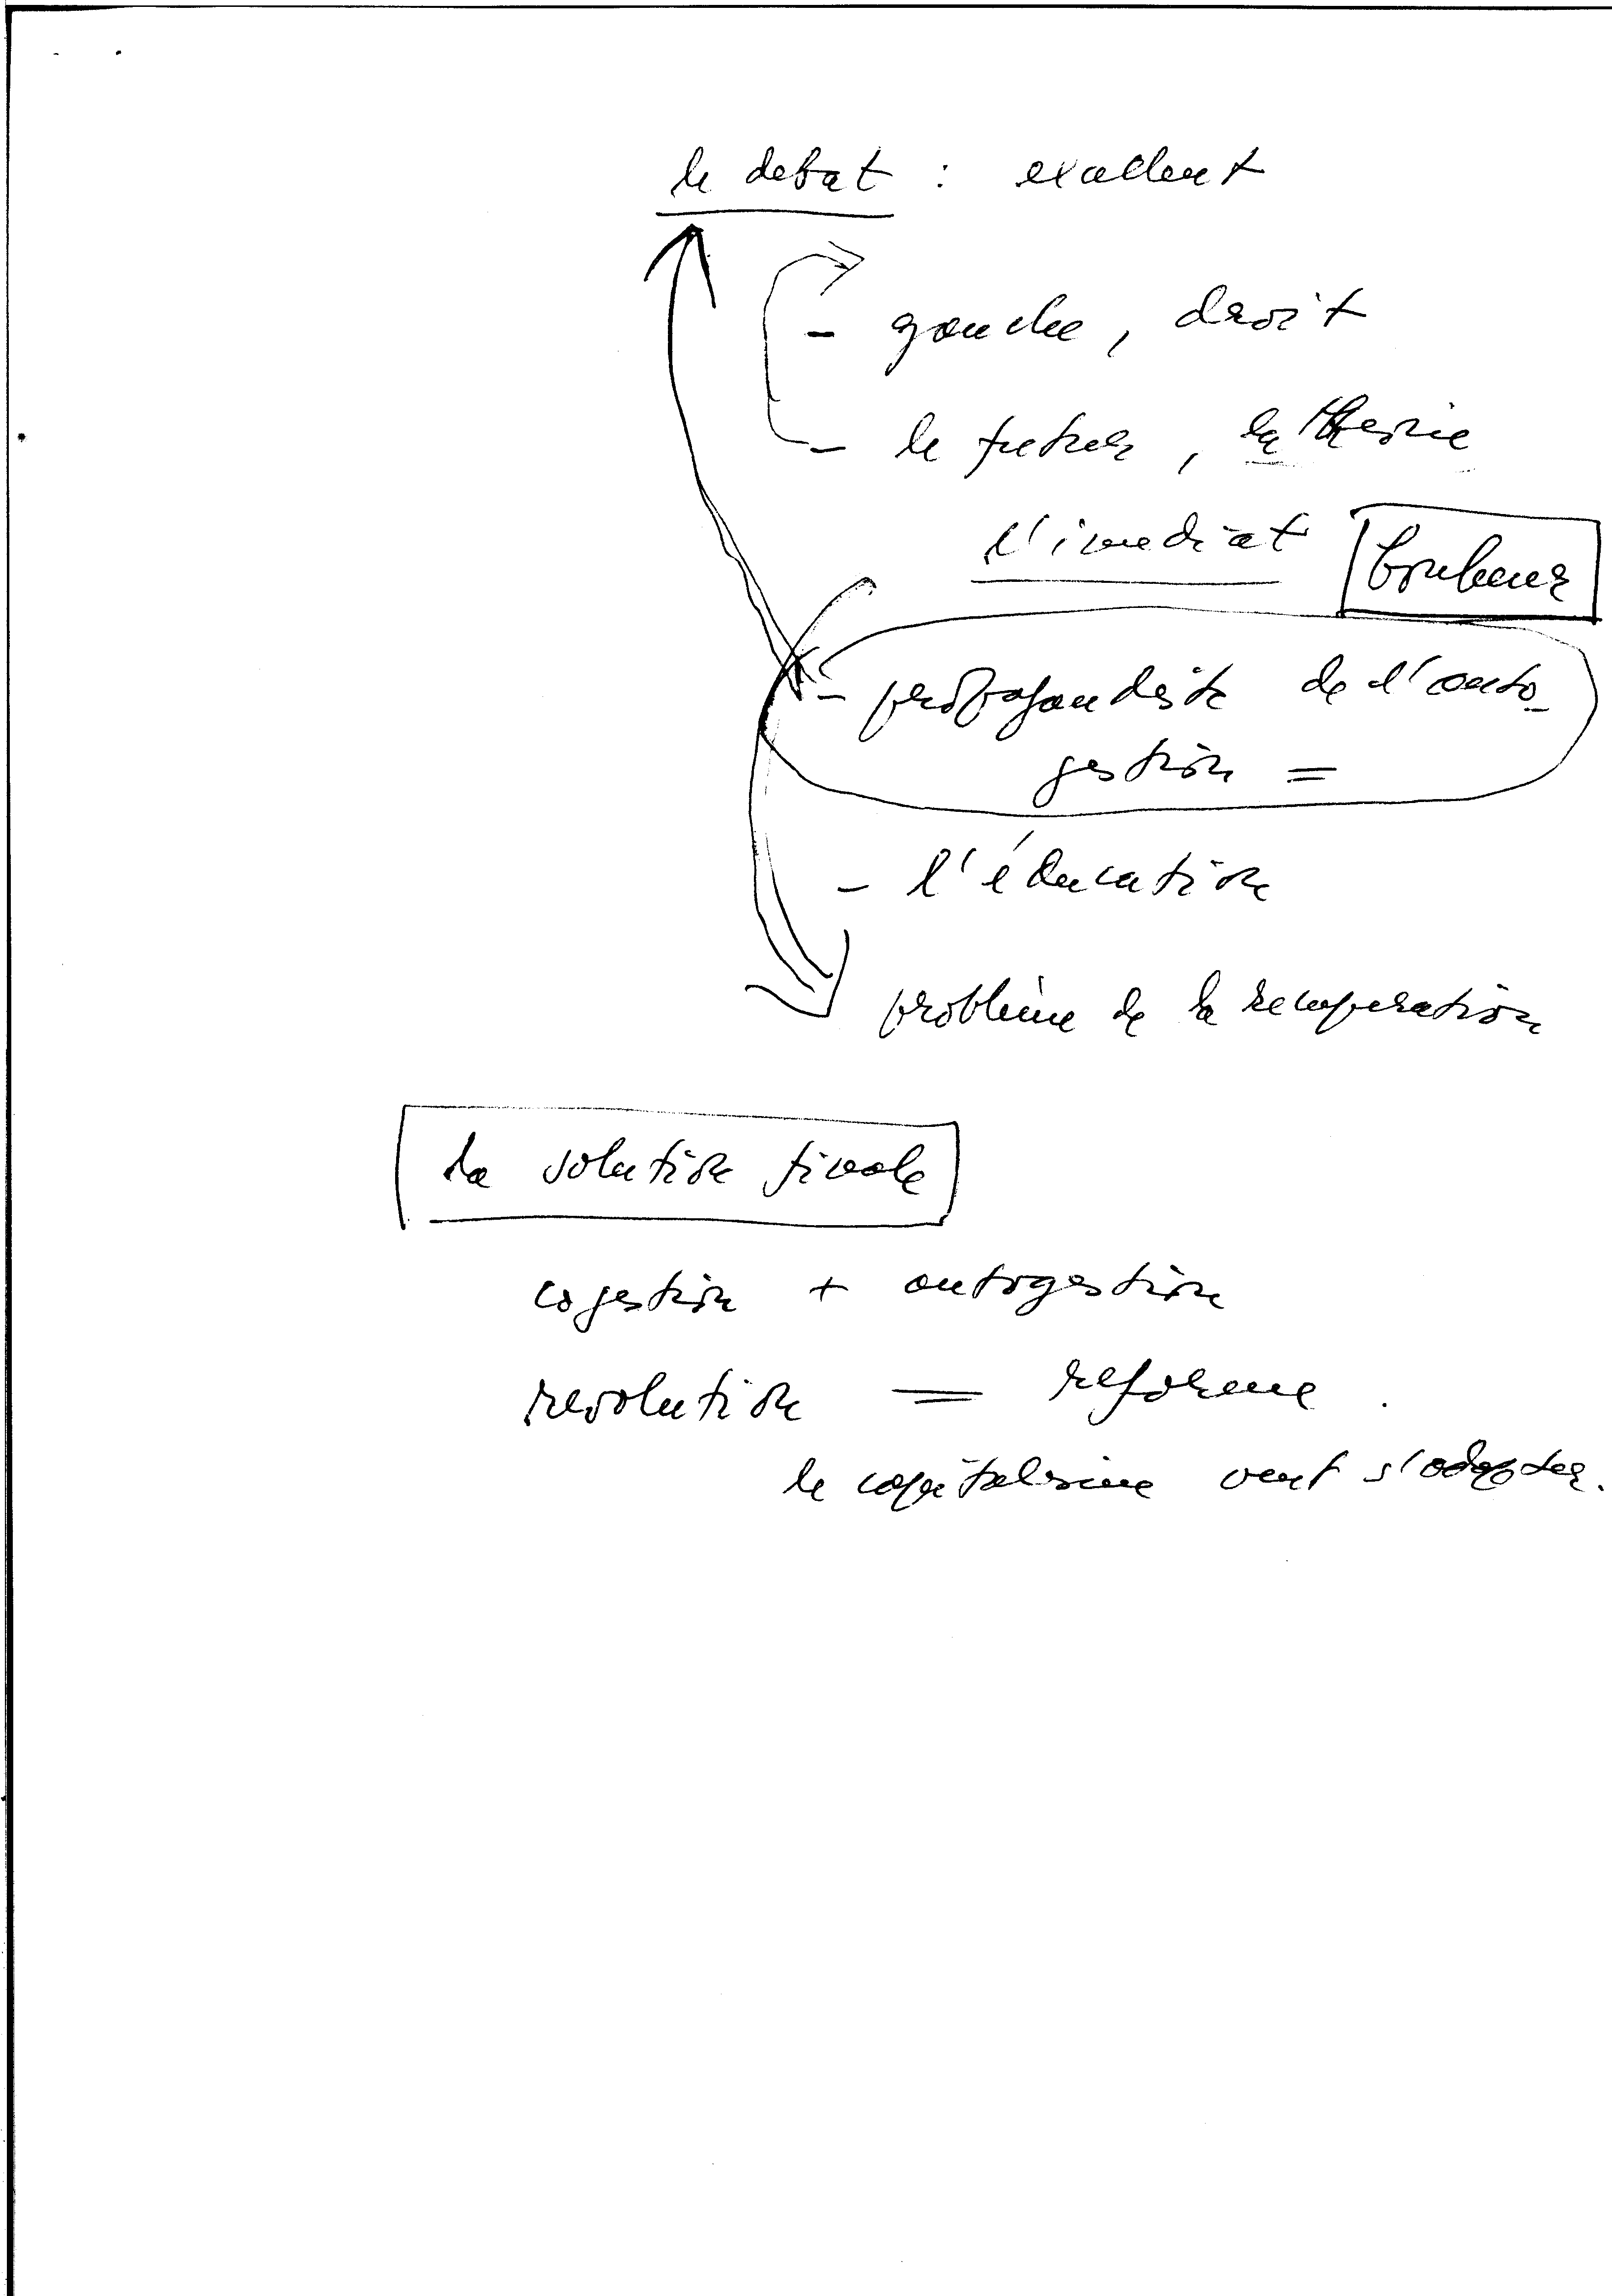 le debat : excellent
- gauche, droit
- le futur, la theorie
l'imediat bonheur
- propagandiste de l'auto-
gestion =
- l'éducation
problème de la recuperation
la solution finale
cogestion + autogestion
revolution = reforme.
le capitalisme veut s'adapter.